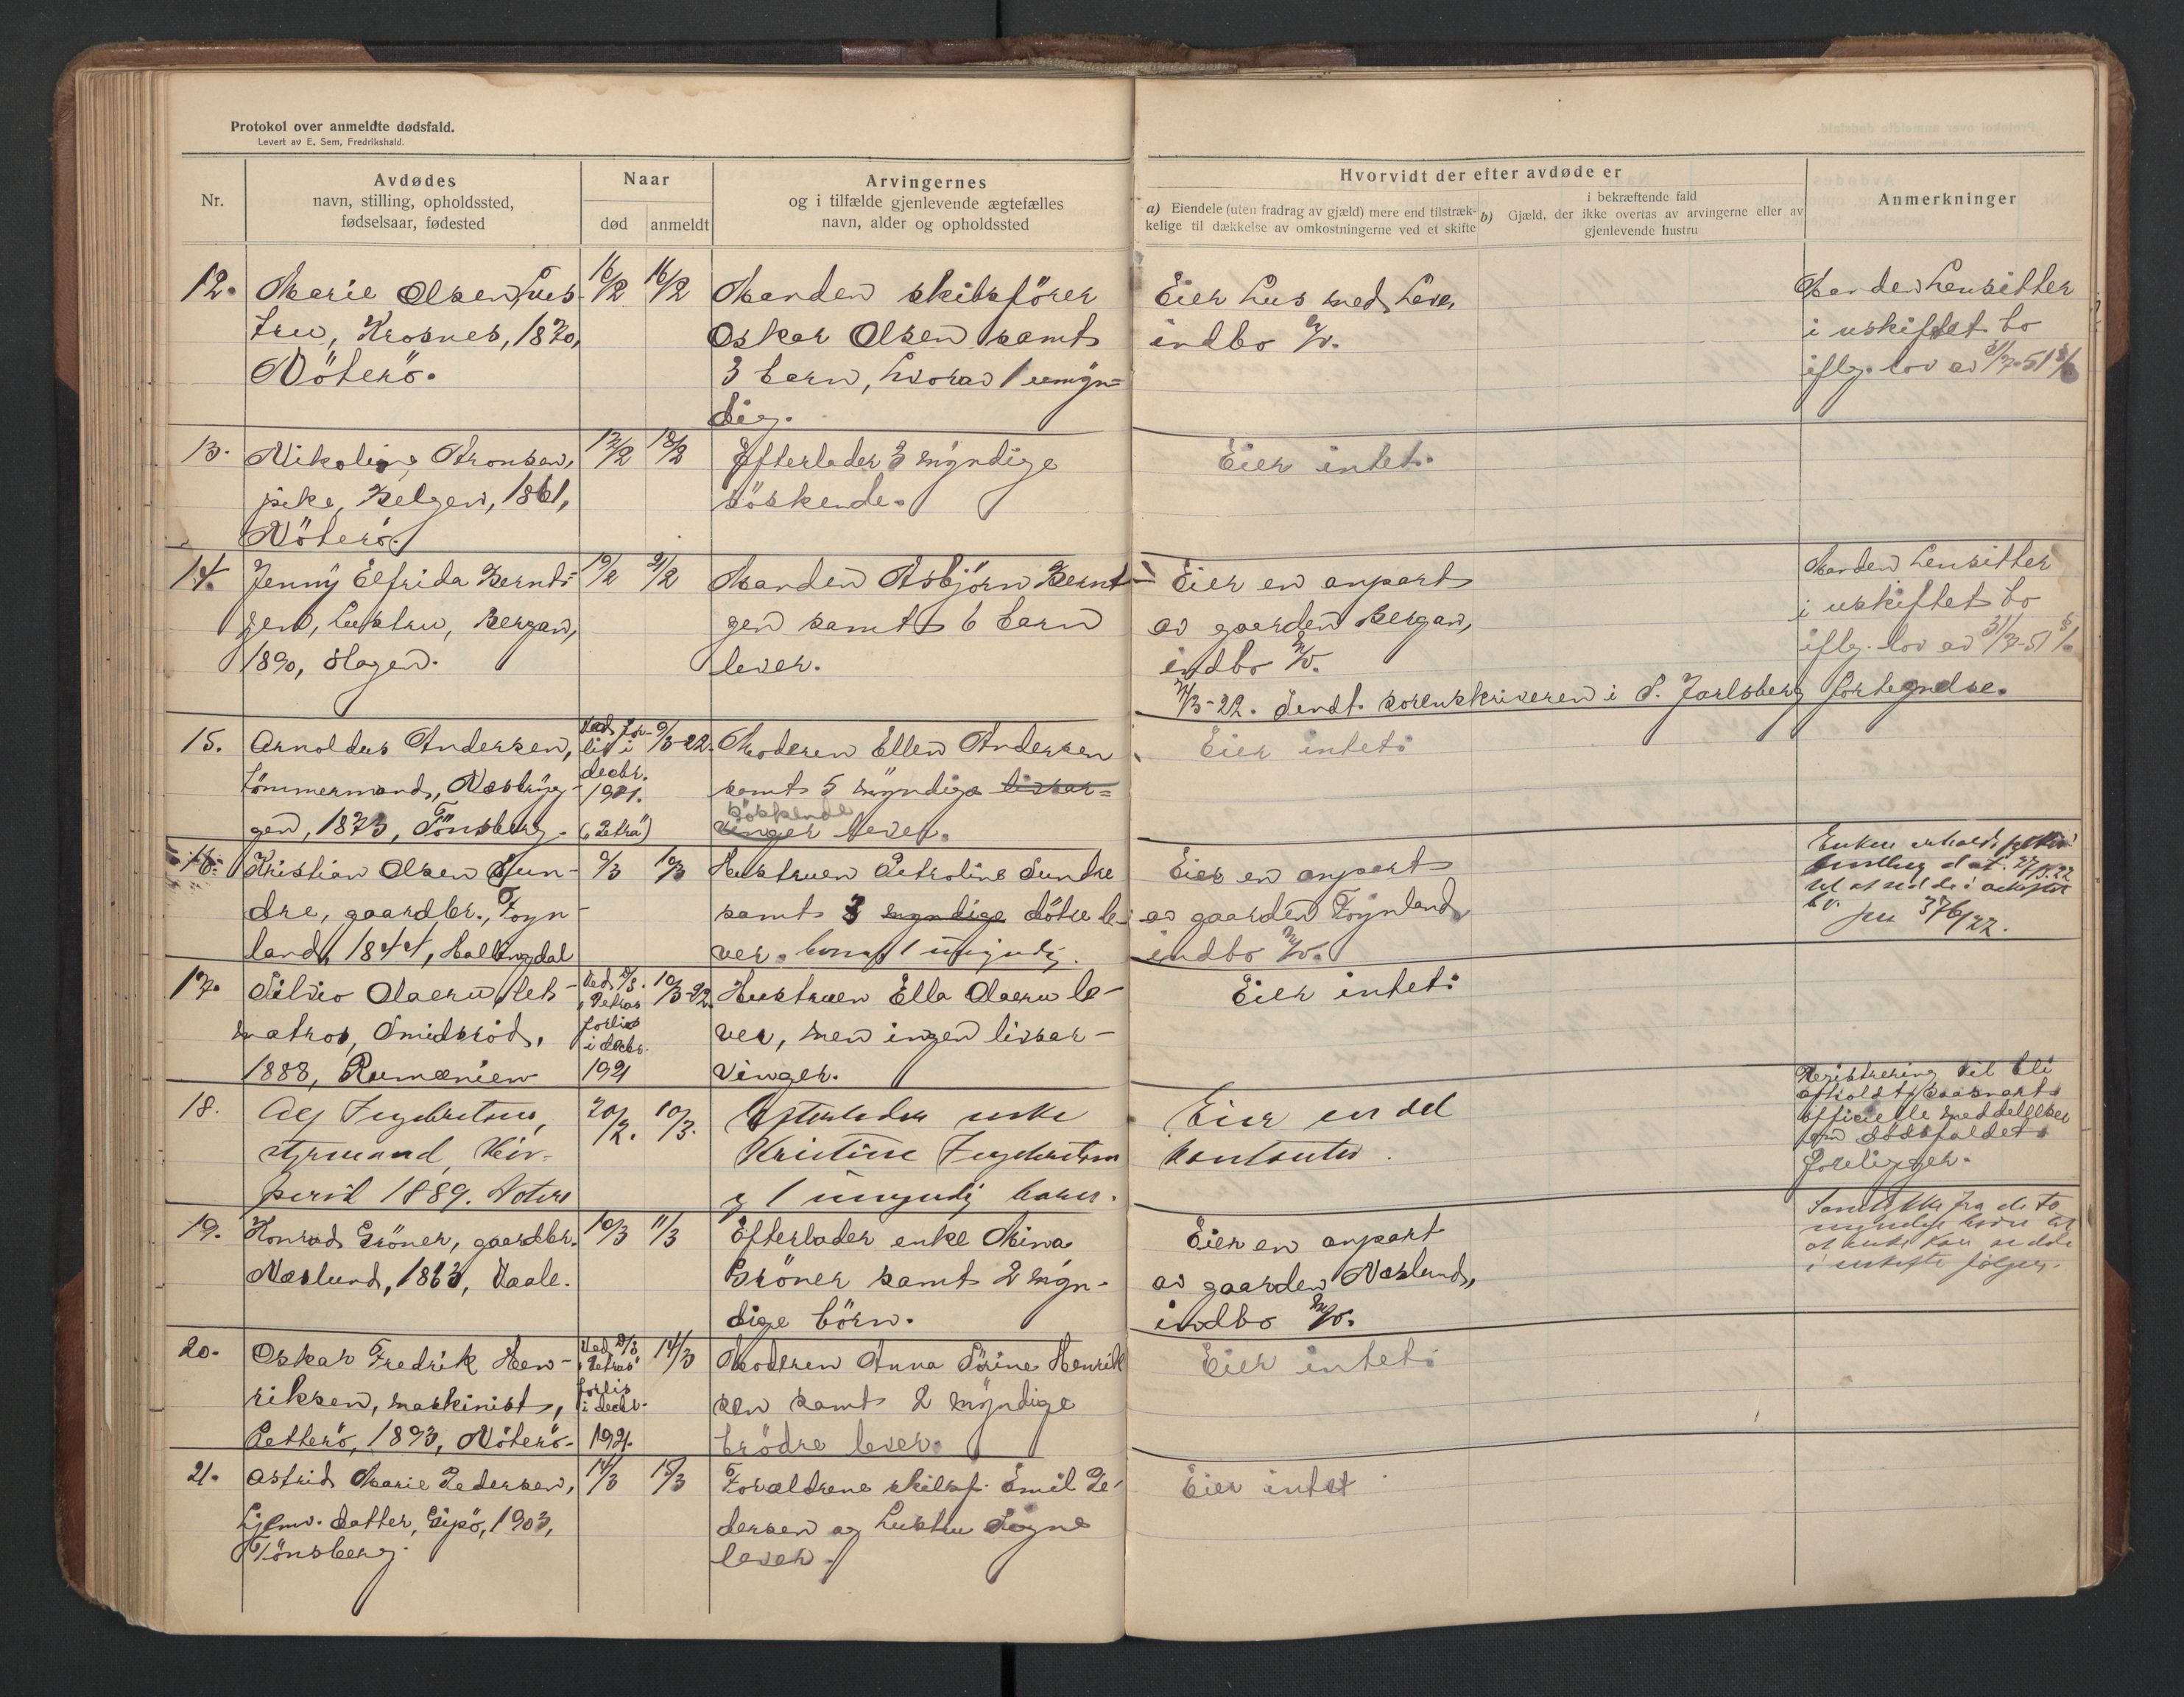 Protokol over anmeldte dødsfald.
Levert av E. Sem, Fredrikshald.
Nr.
Avdødes
navn, stilling, opholdssted,
fødselsaar, fødested
Naar
død
anmeldt
Arvingernes
og i tilfælde gjenlevende ægtefælles
navn, alder og opholdssted
Hvorvidt der efter avdøde er
a) Eiendele (uten fradrag av gjæld) mere end tilstræk-
kelige til dækkelse av omkostningerne ved et skifte
i bekræftende fald
b) Gjæld, der ikke overtas av arvingerne eller av
gjenlevende hustru
Anmerkninger
12. Marie Olsen, hus-
tru, Krosnes, 1870,
Nöterö.
16/2 16/2
Manden skibsförer
Oskar Olsen samt
3 barn, hvorav 1 umyn=
dig.
Eier hus med have,
indbo m/v.
Manden hensitter
i uskiftet bo
iflg. lov av 31/7-51 § 1.
13. Nikoline Aronsen,
pike, Belgen, 1861,
Nöterö.
17/2 18/2
Efterlader 3 myndige
söskende.
Eier intet.
14. Jenny Elfrida Bernt-
zen, hustru, Bergan,
1890, Slagen.
19/2 21/2
Manden Asbjörn Bernt-
zen samt 6 barn
lever.
Eier en anpart
av gaarden Bergan,
indbo m/v.
Manden hensitter
i uskiftet bo
iflg. lov av 31/7-51 § 1.
/3-22. Sendt sorenskriveren i S. Jarlsberg fortegnelse.
15. Arnoldus Andersen,
tömmermand, Næsbryg-
gen, 1873, Tönsberg.
Ved for-
lis i
decbr.
1921.
("Petra")
9/3-22.
Moderen Ellen Andersen
samt 5 myndige livsar=
söskende
vinger lever.
Eier intet.
16. Kristian Olsen Sun-
dre, gaardbr., Föyn-
land, 1844, Hallingdal
9/3 10/3
Hustruen Petroline Sundre
samt 3 myndige dötre le-
ver. hvoraf 1 umyndig.
Eier en anpart
av gaarden Föynland
indbo m/v.
Enken
dat. 27/3.22
til at sidde i uskiftet
bo.
376/22.
17. Silvio Olaeru, let-
matros, Smidsröd,
1888, Rumænien
Ved D/S.
"Petras"
forlis
i decbr.
1921
10/3-22
Hustruen Ella Olaeru le-
ver, men ingen livsar-
vinger.
Eier intet.
18. Alf Ingebretsen,
styrmand,
1889. Nöterö
20/2. 10/3.
Efterlader enke
Kristine Ingebretsen
og 1 umyndig barn.
Eier en del
kontanter.
Registrering vil bli
avholdt saasnart
officielle meddelelser
om dödsfaldet
foreligger.
19. Konrad Gröner, gaardbr.
Næslund, 1863, Vaale.
10/3 11/3
Efterlader enke Mina
Gröner samt 2 myn-
dige börn.
Eier en anpart
av gaarden Næslund,
indbo m/v.
Samtykke fra de to
myndige börn til
at enke kan sidde
i uskifte fölger.
20. Oskar Fredrik Hen-
riksen, maskinist,
Petterö, 1893, Nöterö.
Ved D/S.
"Petras"
forlis
i decbr.
1921.
14/3
Moderen Anna Sörine Henrik
sen samt 2 myndige
brödre lever.
Eier intet.
21. Astrid Marie Pedersen,
hjemv. datter, Gipö, 1903,
Tönsberg.
14/3 15/3
Forældrene skibsf. Emil Pe-
dersen og hustru Signe
lever.
Eier intet